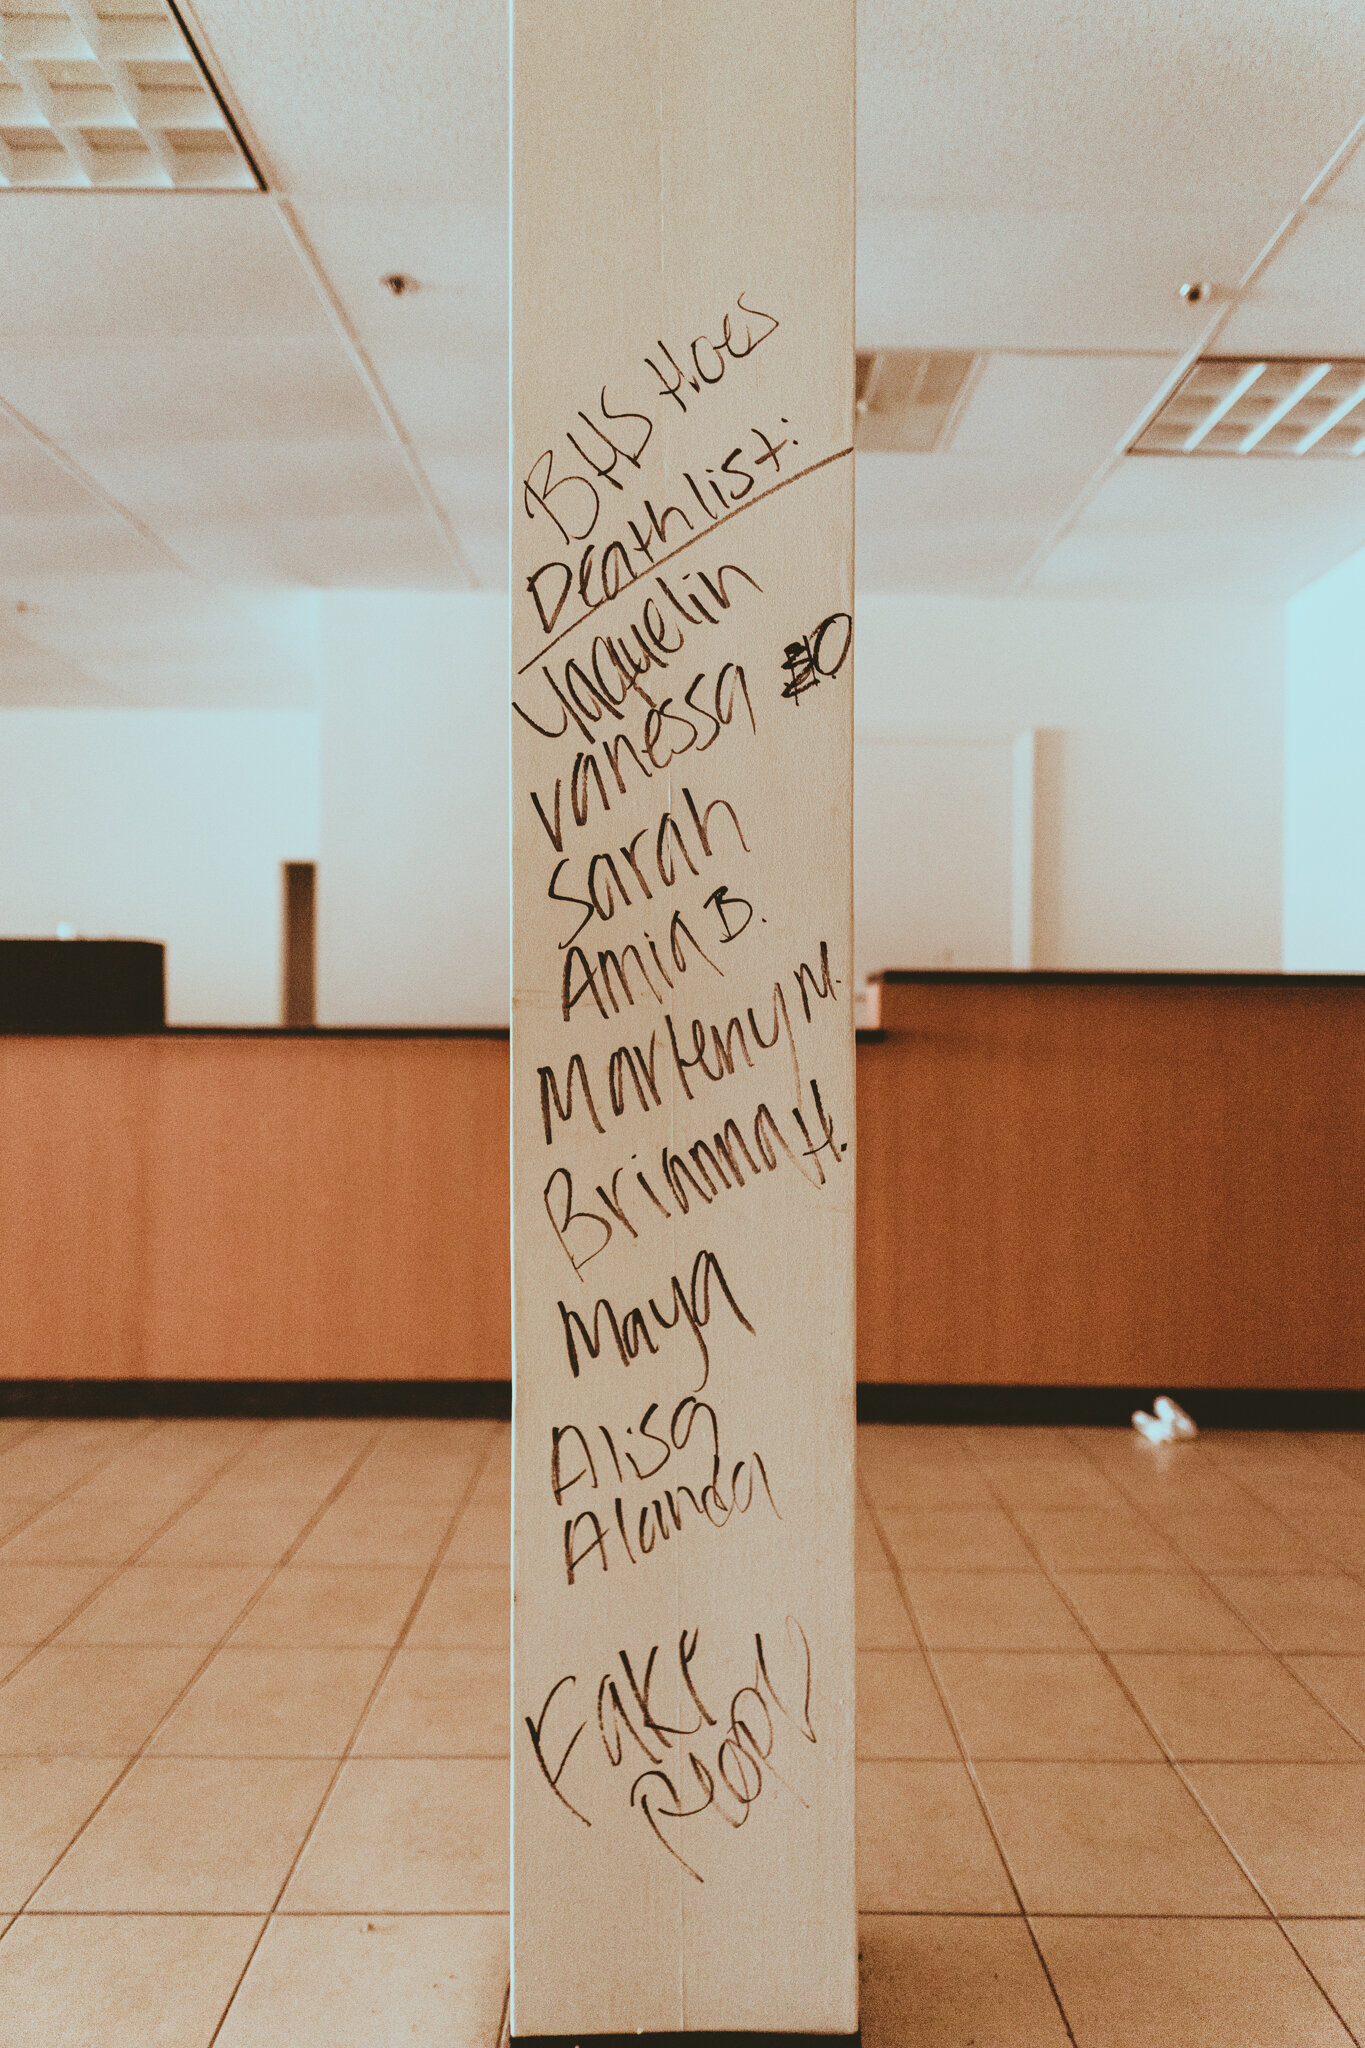 BHS Hoes
Death list:
Yaquelin
Vanessa O
Sarah
Amia B.
Marteny M.
Brianna H.
Maya
Alisa
Alanda
Fake
People